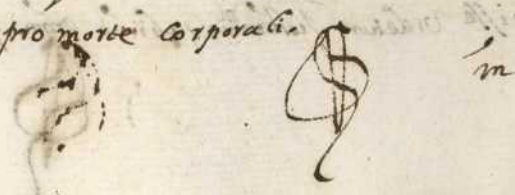 pro morte corporali.
in